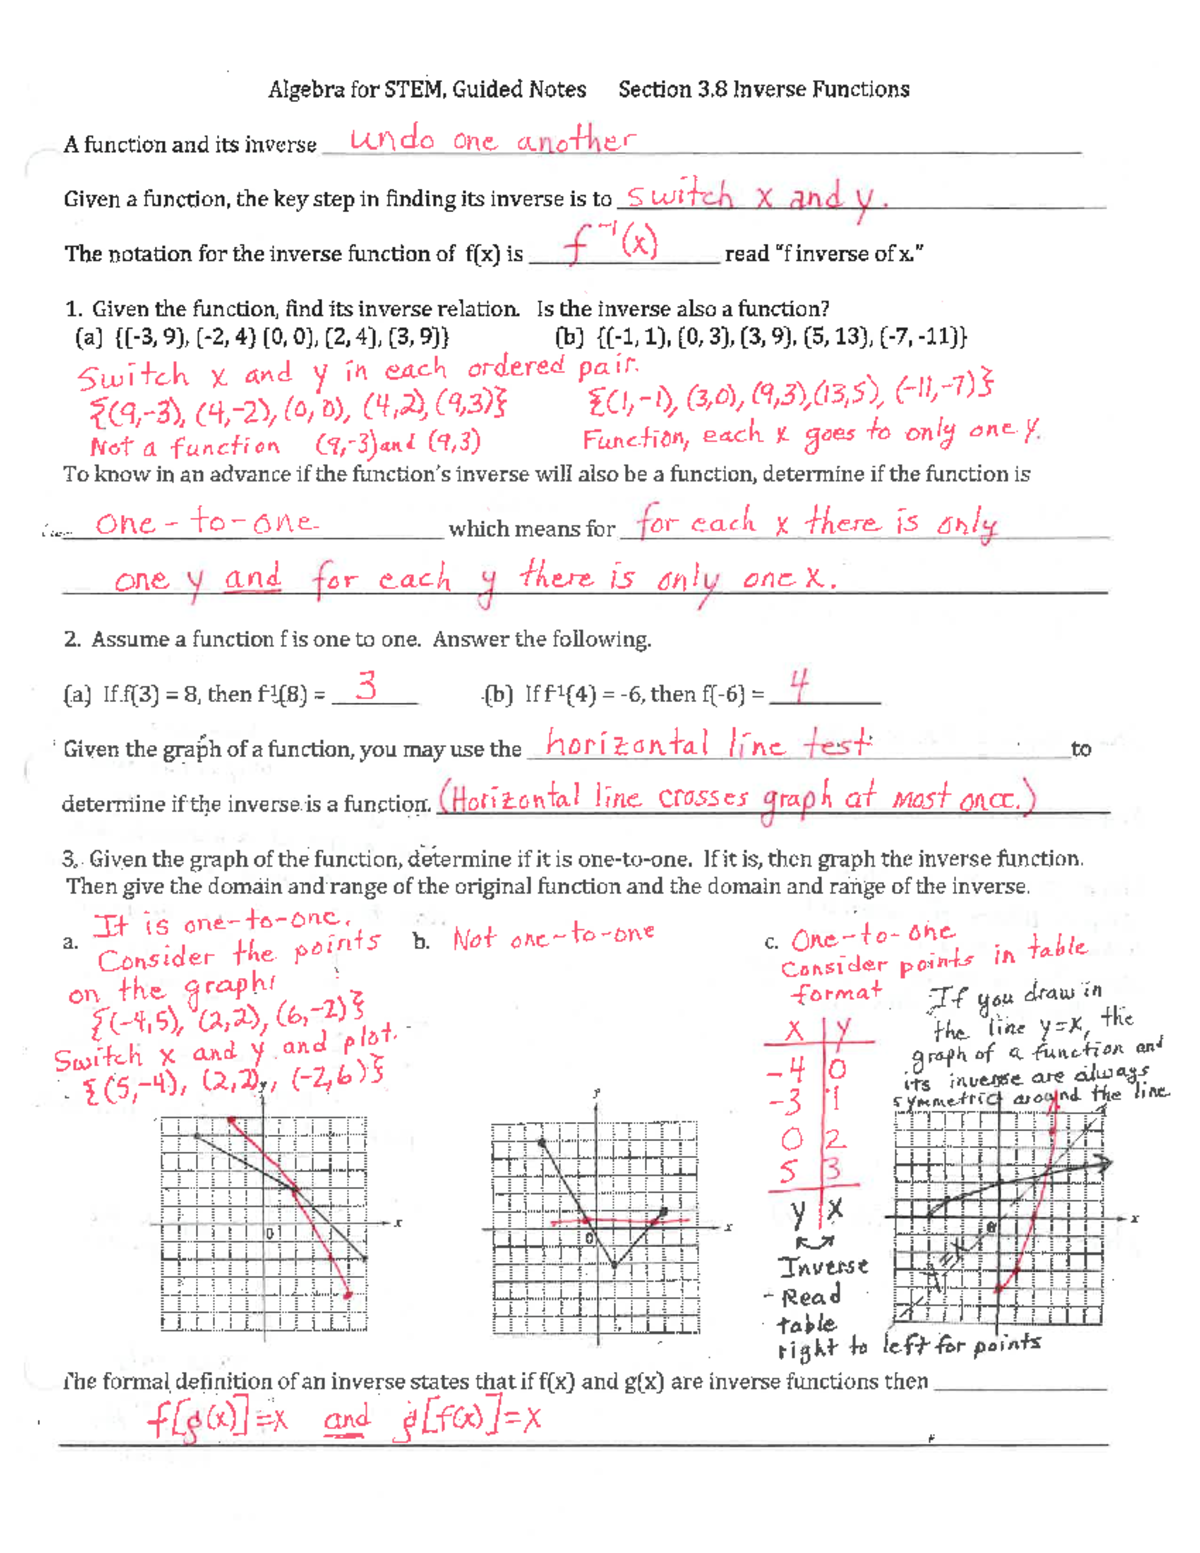 Algebra for STEM, Guided Notes Section 3.8 Inverse Functions
A function and its inverse undo one another
Given a function, the key step in finding its inverse is to switch x and y.
The notation for the inverse function of f(x) is f⁻¹(x) read "f inverse of x."
1. Given the function, find its inverse relation. Is the inverse also a function?
(a) {(-3, 9), (-2, 4) (0, 0), (2, 4), (3, 9)} (b) {(-1, 1), (0, 3), (3, 9), (5, 13), (-7, -11)}
Switch x and y in each ordered pair.
{(9,-3), (4,-2), (0,0), (4,2), (9,3)} {(1,-1), (3,0), (9,3), (13,5), (-11,-7)}
Not a function (9,-3) and (9,3) Function, each x goes to only one y.
To know in an advance if the function's inverse will also be a function, determine if the function is
one-to-one which means for for each x there is only
one y and for each y there is only one x.
2. Assume a function f is one to one. Answer the following.
(a) If f(3) = 8, then f⁻¹(8) = 3 (b) If f⁻¹(4) = -6, then f(-6) = 4
Given the graph of a function, you may use the horizontal line test to
determine if the inverse is a function. (Horizontal line crosses graph at most once.)
3. Given the graph of the function, determine if it is one-to-one. If it is, then graph the inverse function.
Then give the domain and range of the original function and the domain and range of the inverse.
a. It is one-to-one.
Consider the points
on the graph:
{(-4,5), (2,2), (6,-2)}
Switch x and y and plot.
{(5,-4), (2,2), (-2,6)}
y
x
0
b. Not one-to-one
y
x
0
c. One-to-one
Consider points in table
format
x y
-4 0
-3 1
0 2
5 3
y x
Inverse
- Read
table
right to left for points
If you draw in
the line y=x, the
graph of a function and
its inverse are always
symmetric around the line.
y=x
0
x
The formal definition of an inverse states that if f(x) and g(x) are inverse functions then
f[g(x)]=x and g[f(x)]=x